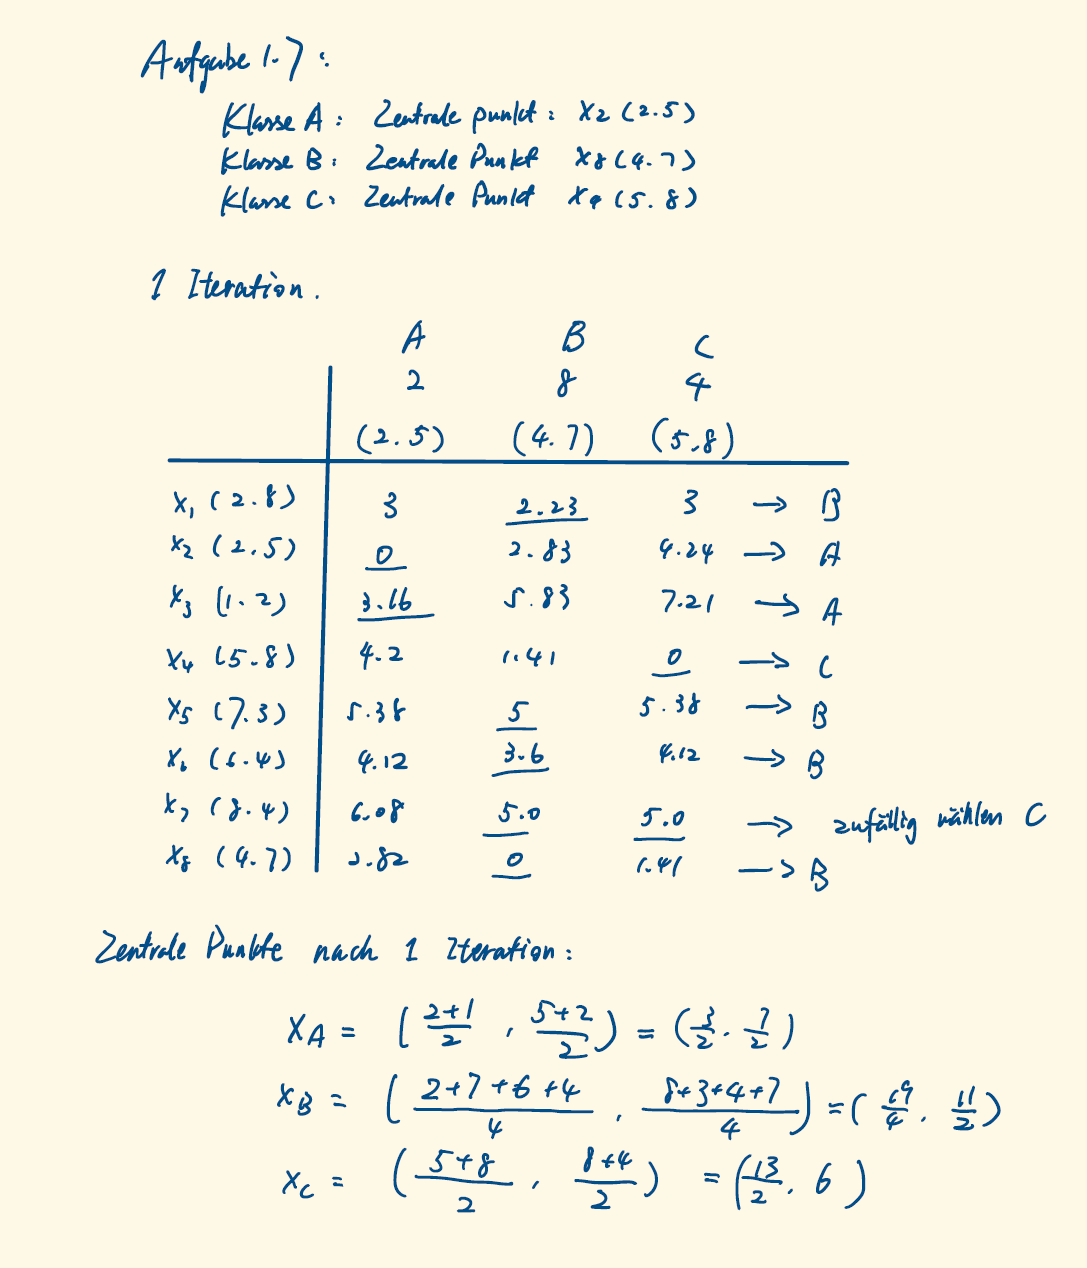 Aufgabe 1.7:
Klasse A: Zentrale punkt: X2 (2.5)
Klasse B: Zentrale Punkt X8 (4.7)
Klasse C: Zentrale Punkt X4 (5.8)
1 Iteration.
A B C
2 8 4
(2.5) (4.7) (5.8)
X1 (2.8) 3 2.23 3 → B
X2 (2.5) 0 2.83 4.24 → A
X3 (1.2) 3.16 5.83 7.21 → A
X4 (5.8) 4.2 1.41 0 → C
X5 (7.3) 5.38 5 5.38 → B
X6 (6.4) 4.12 3.6 4.12 → B
X7 (8.4) 6.08 5.0 5.0 → zufällig wählen C
X8 (4.7) 2.82 0 1.41 → B
Zentrale Punkte nach 1 Iteration:
XA = (2+1/2, 5+2/2) = (3/2, 7/2)
XB = (2+7+6+4/4, 8+3+4+7/4) = (19/4, 11/2)
XC = (5+8/2, 8+4/2) = (13/2, 6)